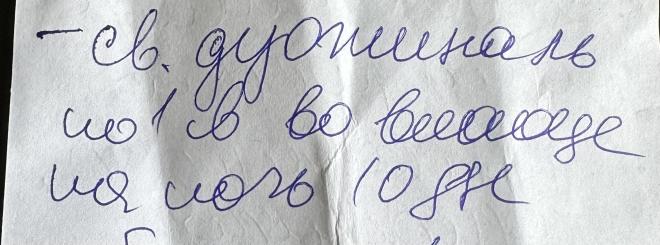 - св. дуожиналь
по 1 св во влагалище
на ночь 10 дн